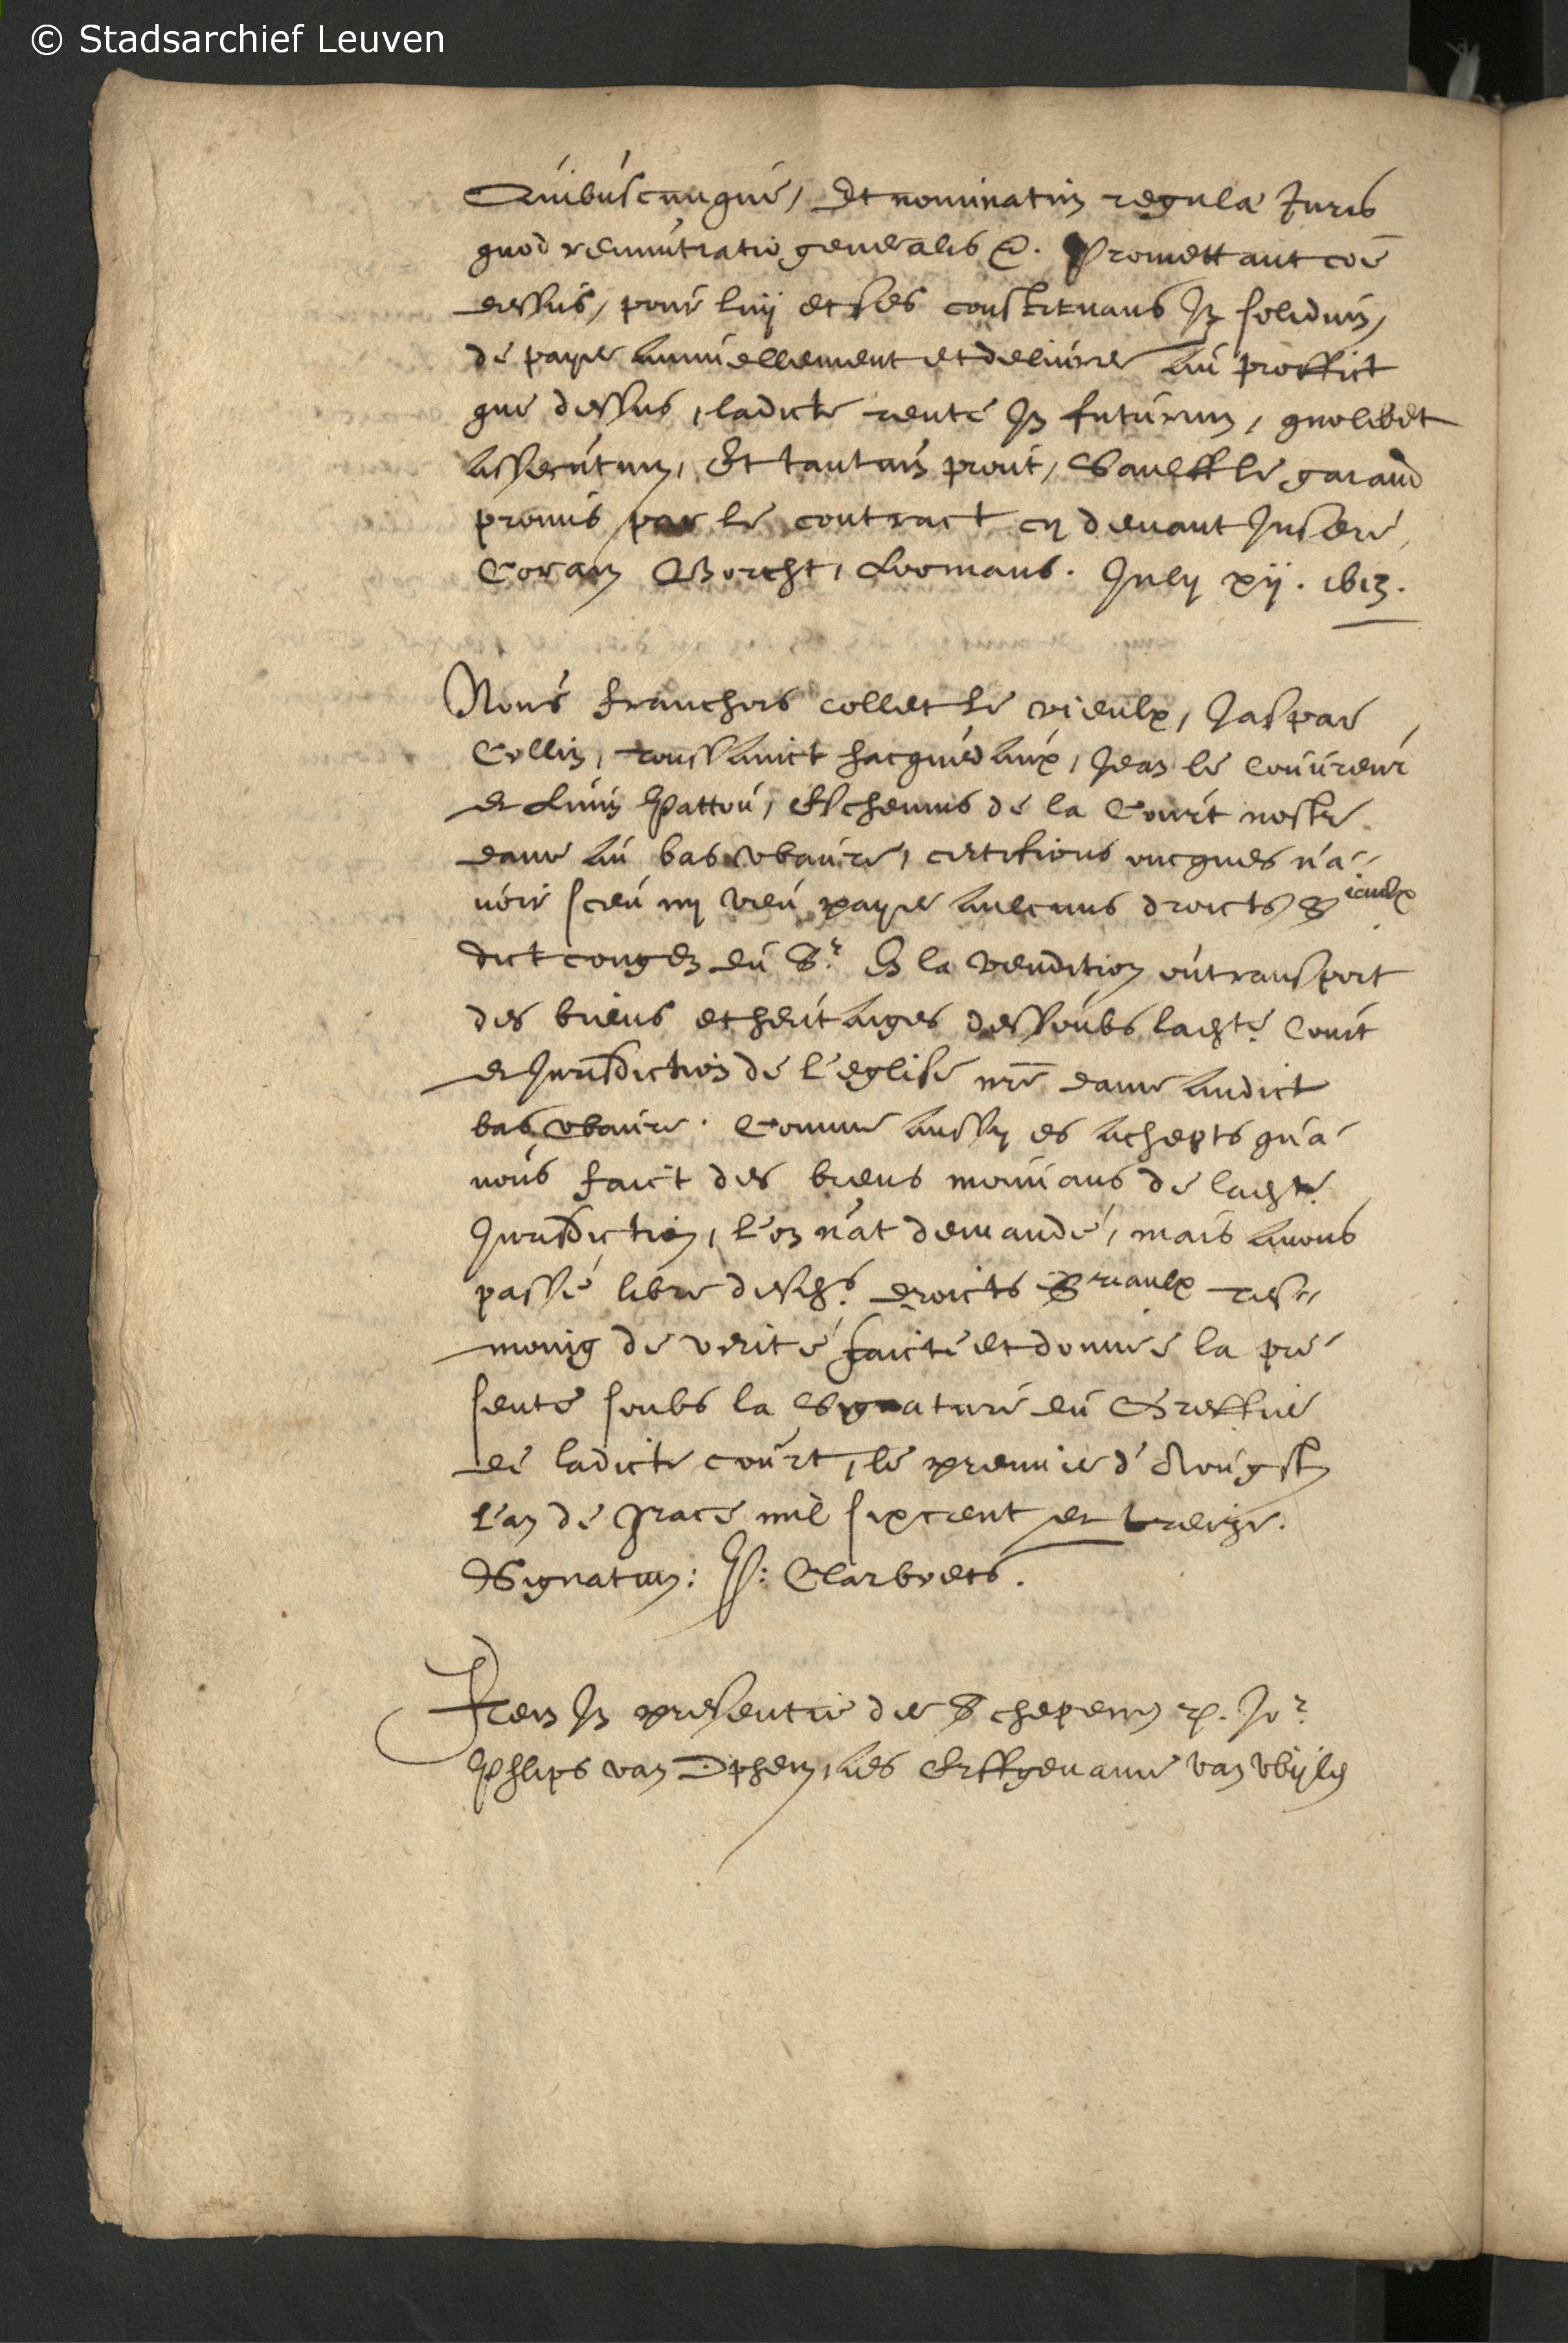 © Stadsarchief Leuven
Quibuscunque, Et nominatim regulae Juris
quod renuntiatio generalis &. Promettant coe
dessus, pour luy et ses constituans In solidum,
de payer annuellement et delivrer au proffict
que dessus, ladicte rente In futurum, quolibet
assecutum, Et tantum prout, Saulff le garand
promis par le contract cy devant Inseré,
Coram Borcht, Loomans. July xij. 1613.
Nous Franchois Collet le vieulx, Jaspar
Collin, toussainct Jacquelaux, Jean le Couvreur
et Pattou, Eschevins de la Court nostre
dame au bas wbavre, certifions oncques n'a-
voir sceu ny veu payer aulcuns droicts Sriaulx
dict congez du Sr. En la vendition ou transport
des biens et heritaiges dessoubs ladte. Court
et Jurisdiction de l'eglise nre dame audict
bas wbavre. Comme aussy es achepts qu'a-
vons faict des biens mouvans de ladte.
Jurisdiction, l'on n'at demandé, mais avons
passé libre desds. droicts Sriaulx tes-
moing de verité faicte et donnée la pre-
sente soubs la Signature du Greffier
de ladicte court, le premier d'Aougst
l'an de grace mil sixcent et treize.
Signatum: P: Clarboets.
Item In presentie der Schepenen Jor.
Phlips van Ophem, als Erffgename van wijlen